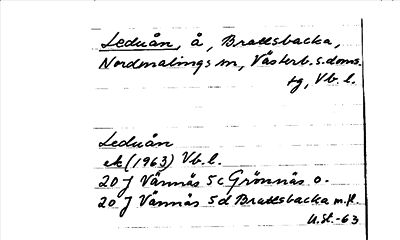 Leduån, å, Brattsbacka,
Nordmalings sn, Västerb. s. doms.
tg, Vb. l.
Leduån
ek (1963) Vb. l.
20 J Vännäs 5 c Grönnäs o.
20 J Vännäs 5 d Brattsbacka m.fl.
U.St.-63